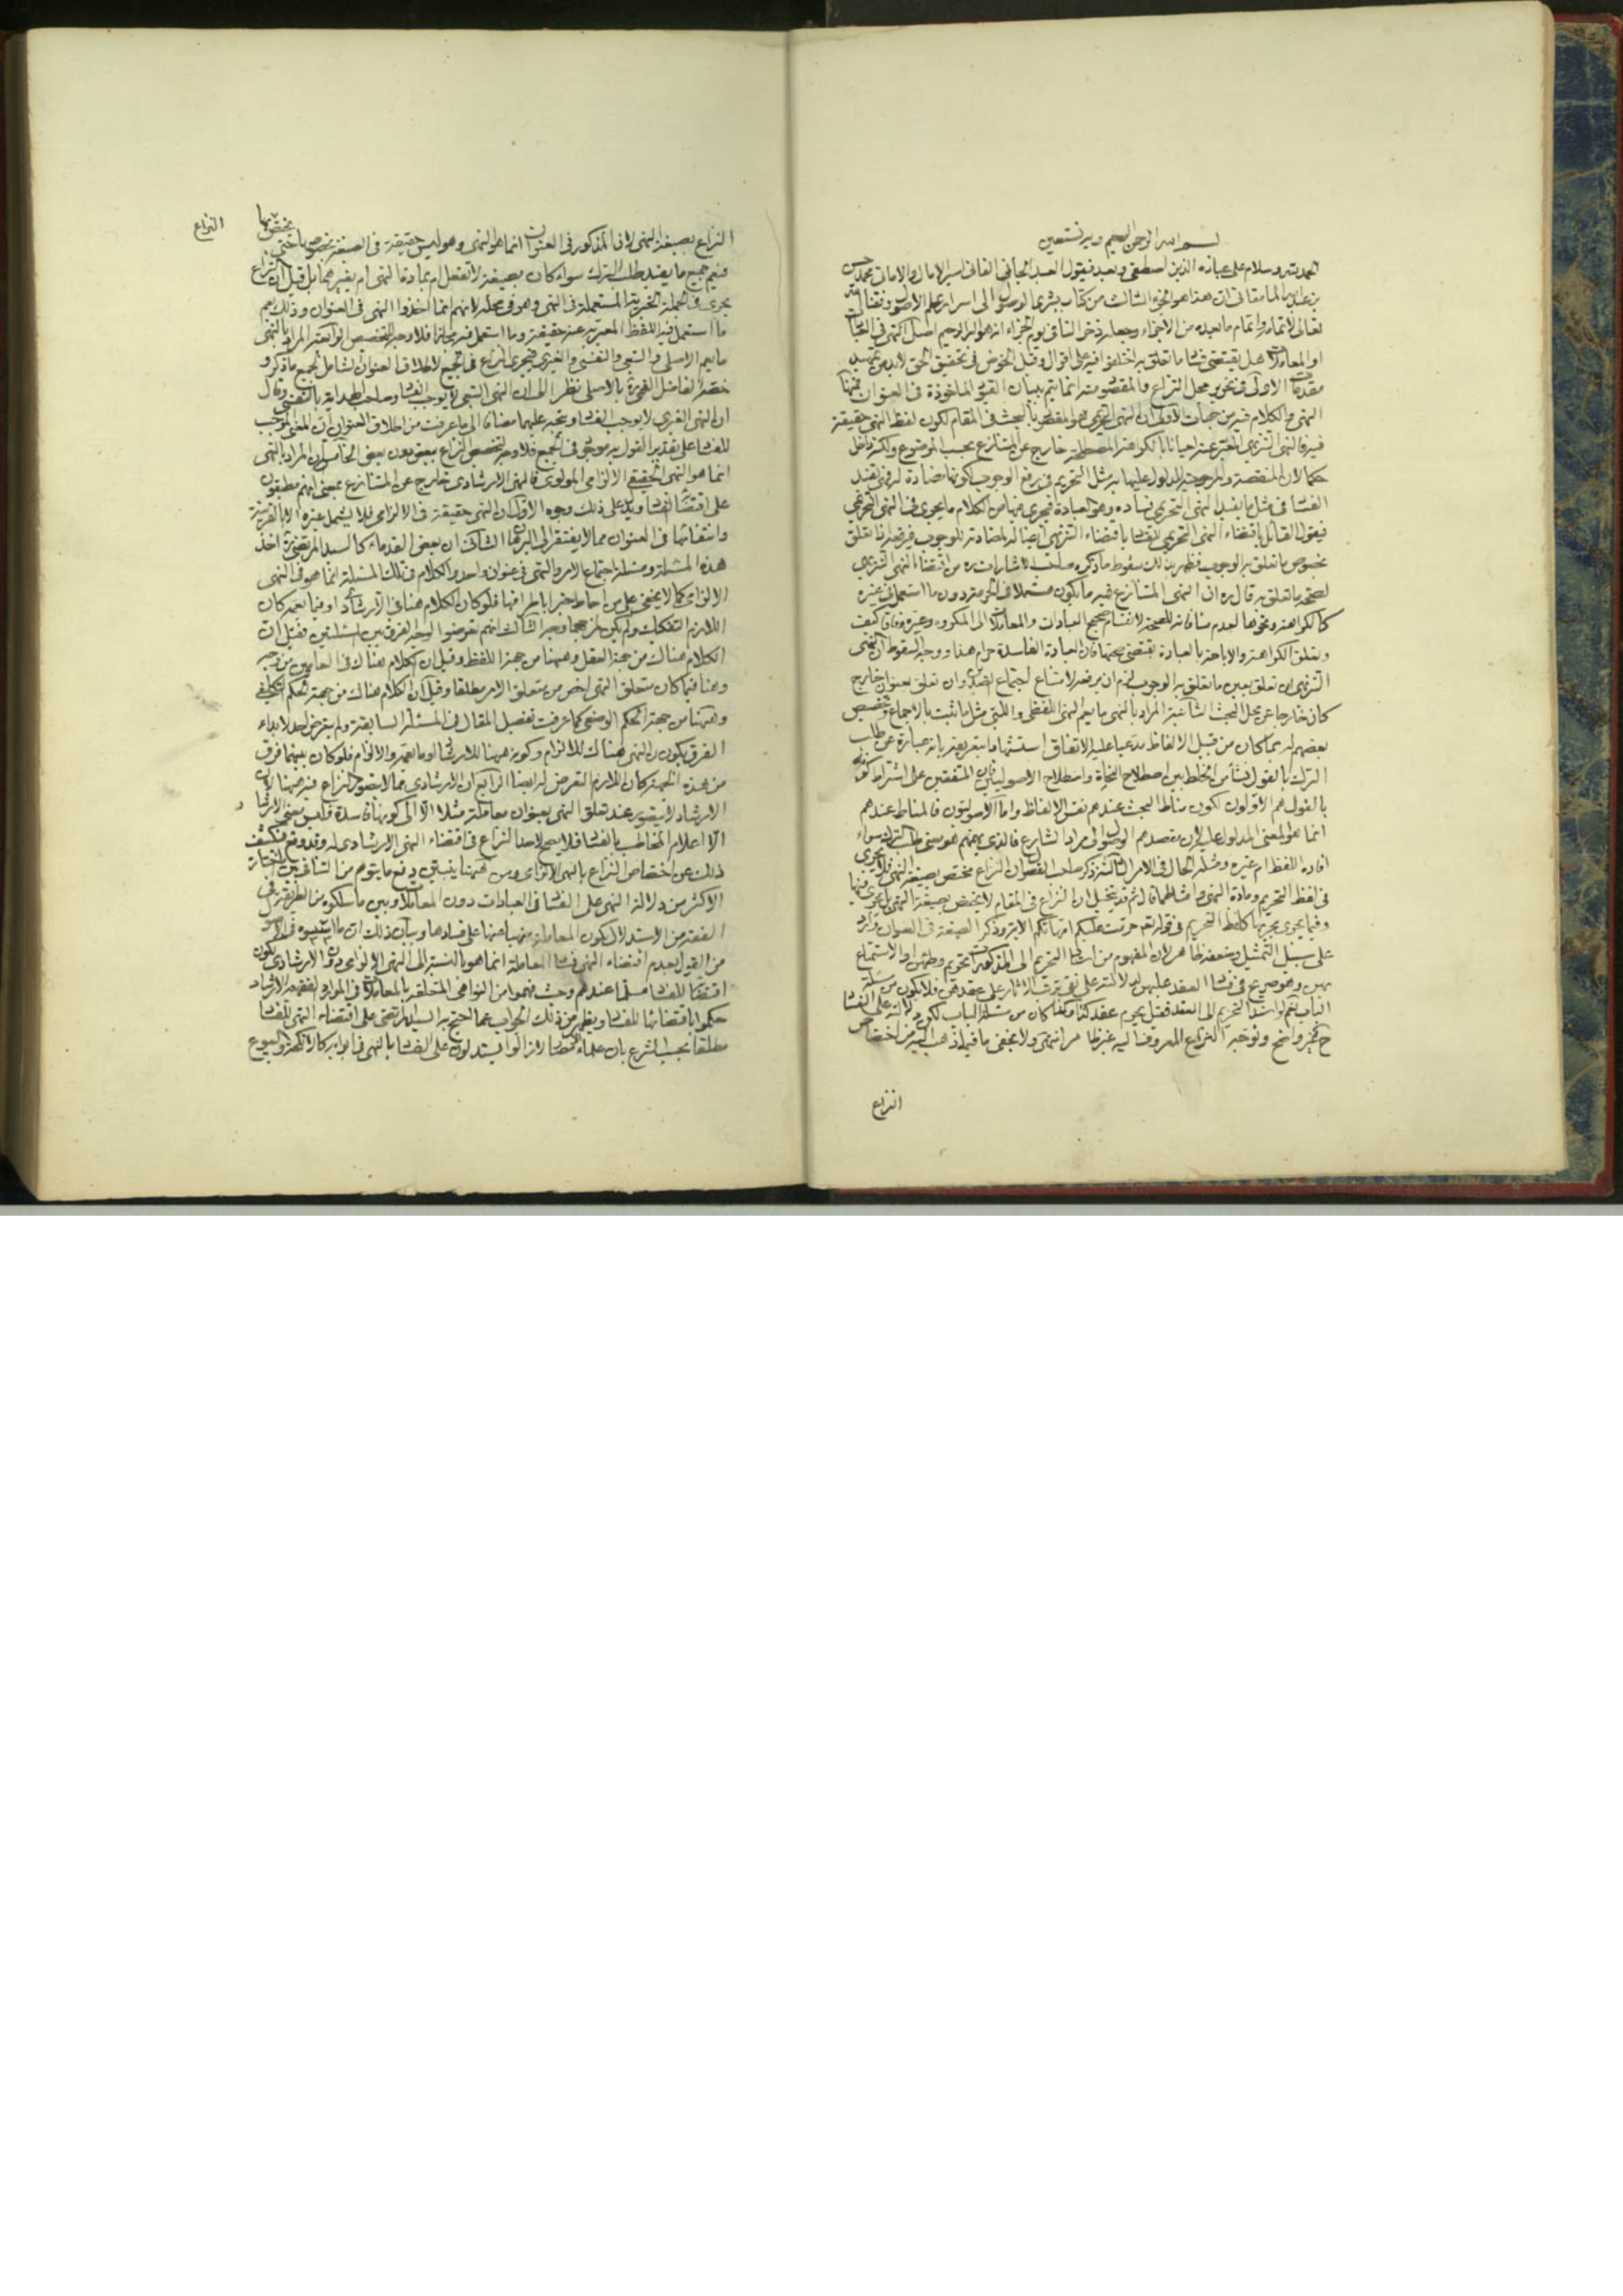 بسم الله الرحمن الرحيم وبه نستعين
الحمد لله وسلام على عباده الذين اصطفى وبعد فيقول العبد الجاني الفاني اسير الامال والاماني محمد حسن
بن عبد الله المامقاني ان هذا هو الجزء الثالث من كتاب بشرى الوصول الى اسرار علم الاصول وفقنا الله
تعالى لاتمامه واتمام ما بعده من الاجزاء وجعله ذخرا لنا في يوم الجزاء انه هو البر الرحيم اصل النهي في العبادات
او المعاملات هل يقتضي فساد ما تعلق به اختلفوا فيه على اقوال وقبل الخوض في تحقيق الحق لا بد من تمهيد
مقدمات الاولى في تحرير محل النزاع والمقصود منه انما يتم ببيان القيود الماخوذة في العنوان فمنها
النهي والكلام فيه من جهات الاولى ان النهي التحريمي هو المقصود بالبحث في المقام لكون لفظ النهي حقيقة
فيه والنهي التنزيهي المعبر عنه احيانا بالكراهة المصطلحة خارج عن المتنازع بحسب الموضوع ولكنه داخل
حكما لان المنقصة والمرجوحية المدلول عليها به مثل التحريم في رفع الوجوب لكونها مضادة له فهي تفيد
الفساد في مثل ما يفيد النهي التحريمي فساده وهو العبادة فيجري فيها من الكلام ما يجري في النهي التحريمي
فيقول القائل باقتضاء النهي التحريمي للفساد باقتضاء التنزيهي ايضا له لمضادته للوجوب فيرفعه اذا تعلق
بخصوص ما تعلق به الوجوب فظهر بذلك سقوط ما ذكره صاحب الاشارات ره من اقتضاء النهي التنزيهي
لصحة ما تعلق به قال ره ان النهي المتنازع فيه ما يكون مستعملا في الحرمة دون ما استعمل في غيره
كالكراهة ونحوها لعدم منافاته للصحة لانقسام صحيح العبادات والمعاملات الى المكروه وغيره وفاقا كيف
وتعلق الكراهة والاباحة بالعبادة يقتضي صحتها فان العبادة الفاسدة حرام هذا ووجه السقوط ان النهي
التنزيهي ان تعلق بعين ما تعلق به الوجوب لزم ان يرفعه لامتناع اجتماع الضدين وان تعلق بعنوان خارج
كان خارجا عن محل البحث الثانية المراد بالنهي ما يعم النهي اللفظي واللبي مثل ما ثبت بالاجماع وتخصيص
بعضهم له بما كان من قبيل الالفاظ مدعيا عليه الاتفاق استشهادا بتعريفه بانه عبارة عن طلب
الترك بالقول نشأ من الخلط بين اصطلاح النحاة واصطلاح الاصوليين فان المتفقين على اشتراط كونه
بالقول هم الاولون لكون مناط البحث عندهم نفس الالفاظ واما الاصوليون فالمناط عندهم
انما هو المعنى المدلول عليه لان مقصدهم الوصول الى مراد الشارع فالذي يهمهم هو معنى طلب الترك سواء
افاده اللفظ ام غيره ومثله الحال في الامر الثالثة ذكر صاحب الفصول ان النزاع مختص بصيغة النهي فلا يجري
في لفظ التحريم ومادة النهي وامثالهما قال ثم قد يتخيل ان النزاع في المقام لا يختص بصيغة النهي بل يجري فيها
وفيما يجري مجريها كلفظ التحريم في قوله تعالى حرمت عليكم امهاتكم الاية وذكر الصيغة في العنوان وارد
على سبيل التمثيل وضعفه ظاهر لان المفهوم من اسناد التحريم الى المذكورات تحريم وطئهن او الاستمتاع
بهن وهو صريح في فساد العقد عليهن لدلالته على نفي ترتب الاثار على عقدهن فلا يكون من مسئلة
الباب نعم لو اسند التحريم الى العقد فقيل يحرم عقد كذا وكذا كان من مسئلة الباب لكون دلالته على الفساد
ح غير واضح وتوجه النزاع المعروف اليه غير ظاهر انتهى ولا يخفى ما فيه اذ هب اليه من اختصاص
النزاع
النزاع بصيغة النهي لان المذكور في العنوان انما هو النهي وهو ليس حقيقة في الصيغة بخصوصها حتى يختص بها
فيعم جميع ما يفيد طلب الترك سواء كان بصيغة لا تفعل ام بمادة النهي ام بغيرهما بل قيل ان النزاع
يجري في الجملة الخبرية المستعملة في النهي وهو في محله لانهم انما اخذوا النهي في العنوان وذلك يعم
ما استعمل فيه اللفظ المعبر به عنه حقيقة وما استعمل فيه مجازا فلا وجه للتخصيص الرابعة المراد بالنهي
ما يعم الاصلي والتبعي والنفسي والغيري فيجري النزاع في الجميع لاطلاق العنوان الشامل لجميع ما ذكر و
خصه الفاضل القمي ره بالاصلي نظرا الى ان النهي التبعي لا يوجب الفساد وصاحب الهداية بالنفسي وقال
ان النهي الغيري لا يوجب الفساد ويتجه عليهما مضافا الى ما عرفت من اطلاق العنوان ان المعنى الموجب
للفساد على تقدير القول به موجود في الجميع فلا وجه لتخصيص النزاع ببعض دون بعض الخامسة ان المراد بالنهي
انما هو النهي الحقيقي الالزامي المولوي فالنهي الارشادي خارج عن المتنازع بمعنى انهم مطبقون
على اقتضائه الفساد ويدل على ذلك وجوه الاول ان النهي حقيقة في الالزامي فلا يشمل غيره الا بالقرينة
وانتفائها في العنوان مما لا يفتقر الى البرهان الثاني ان بعض القدماء كالسيد المرتضى ره اخذ
هذه المسئلة ومسئلة اجتماع الامر والنهي في عنوان واحد والكلام في تلك المسئلة انما هو في النهي
الالزامي كما لا يخفى على من احاط خبرا باطرافها فلو كان الكلام هنا في الارشادي او فيما يعمه كان
اللازم التفكيك ولم يكن للجمع وجه الثالث انهم تعرضوا لوجه الفرق بين المسئلتين فقيل ان
الكلام هناك من جهة العقل وهيهنا من جهة اللفظ وقيل ان الكلام هناك في العامين من وجه
وهنا فيما كان متعلق النهي اخص من متعلق الامر مطلقا وقيل ان الكلام هناك من جهة الحكم التكليفي
وههنا من جهة الحكم الوضعي كما عرفت تفصيل المقال في المسئلة السابقة ولم يتعرض احد لابداء
الفرق بكون النهي هناك للالزام وكونه هيهنا للارشاد او ما يعمه والالزام فلو كان بينهما فرق
من هذه الجهة كان اللازم التعرض له ايضا الرابع ان الارشادي مما لا يتصور النزاع فيه هيهنا لان
الارشاد لا يتصور عند تعلق النهي بعنوان معاملة مثلا الا الى كونها فاسدة فليس معنى الارشاد
الا اعلام المخاطب بالفساد فلا يصح لاحد النزاع في اقتضاء النهي الارشادي له وقد وقع الكشف
بذلك عن اختصاص النزاع بالنهي الالزامي ومن هيهنا ينبثق دفع ما يتوهم من التنافي بين ما اختاره
الاكثر من دلالة النهي على الفساد في العبادات دون المعاملات وبين ما سلكوه من الطريقة في
الفقه من الاستدلال بكون المعاملة منهيا عنها على فسادها وبيان ذلك ان ما اسسوه في الاصول
من القول بعدم اقتضاء النهي فساد المعاملة انما هو بالنسبة الى النهي الالزامي دون الارشادي لكون
اقتضائه للفساد مسلما عندهم وحيث فهموا من النواهي المتعلقة بالمعاملات في الموارد الفقهية الارشاد
حكموا باقتضائها للفساد ويظهر من ذلك الجواب عما احتج به السيد المرتضى على اقتضاء النهي للفساد
مطلقا بحسب الشرع بان علماء الامصار لم يزالوا يستدلون على الفساد بالنهي في ابوابه كالانكحة والبيوع
النزاع